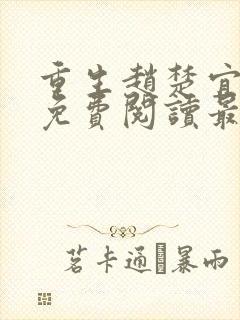 重生趙楚宜
免費閱讀最
茗卡通 暴雨